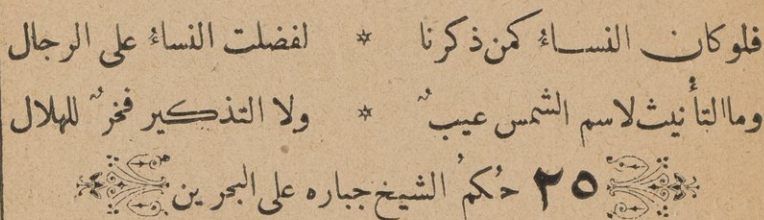 فلو كان النساءُ كمن ذكرنا * لفضلت النساءُ على الرجال
وما التأنيث لاسم الشمس عيبٌ * ولا التذكير فخرٌ للهلال
٢٥ حُكمُ الشيخ جباره على البحرين